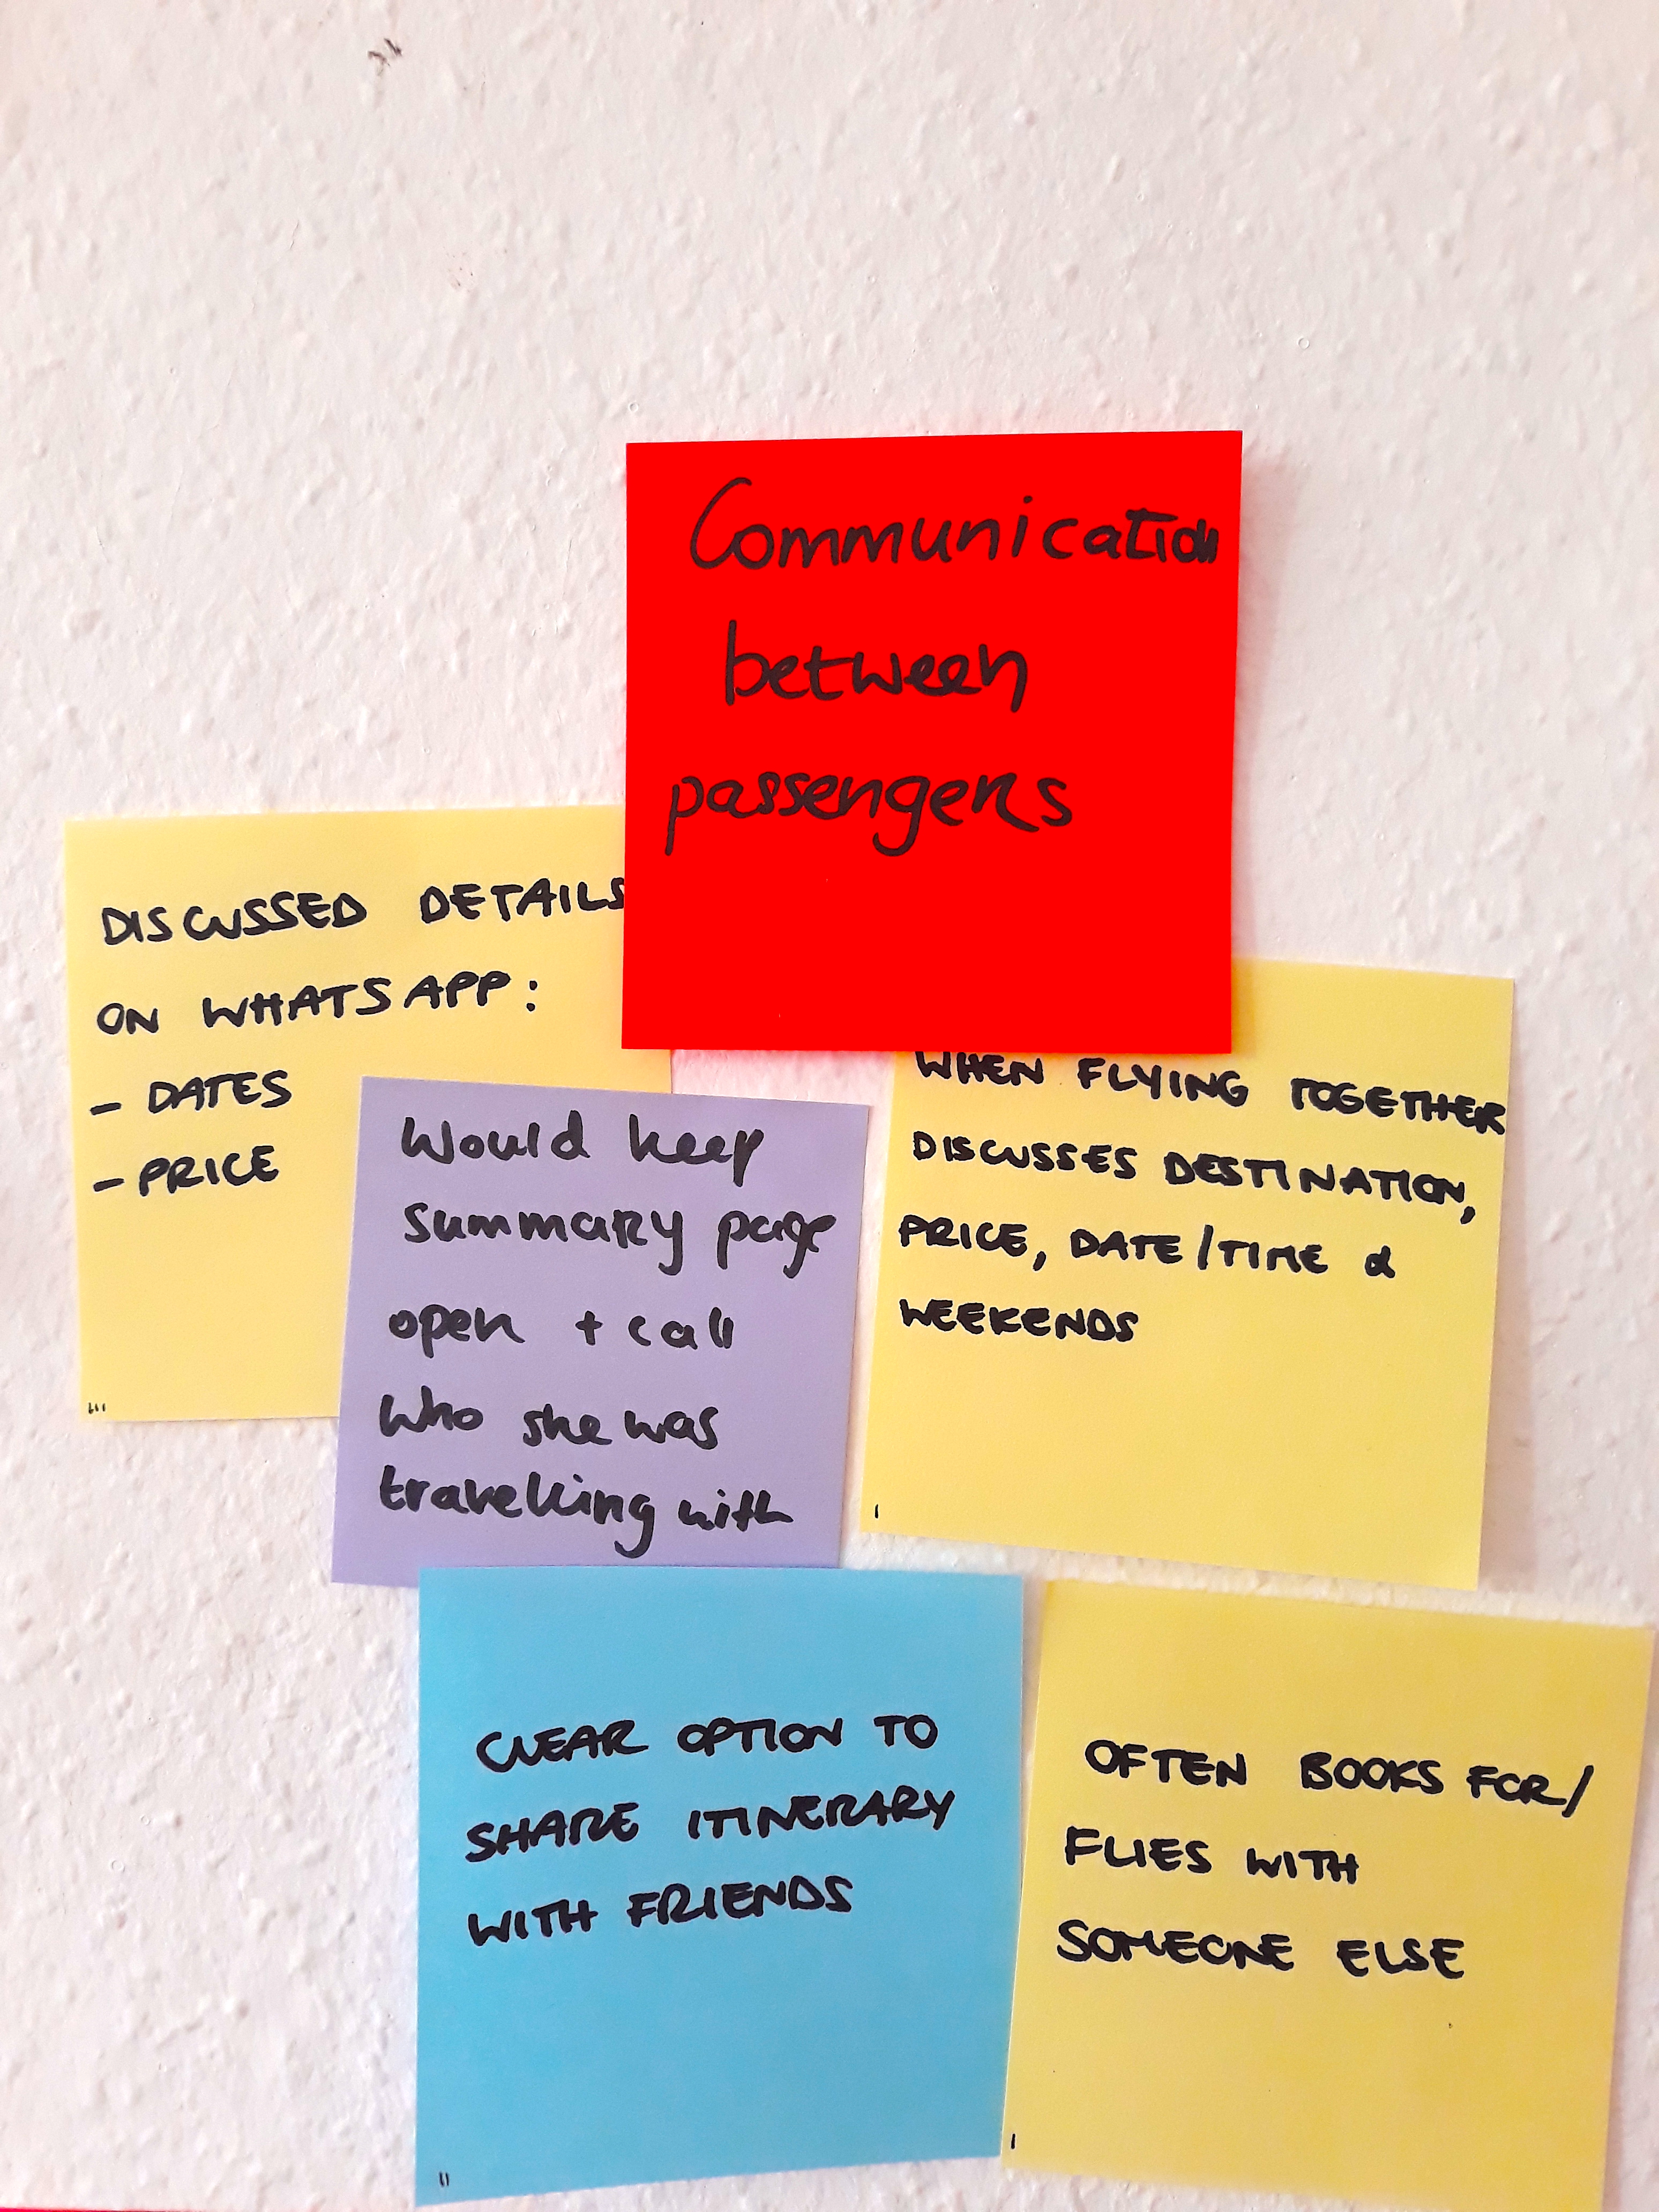 Communication
between
passengers
DISCUSSED DETAILS
ON WHATSAPP:
- DATES
- PRICE
Would keep
summary page
open + call
who she was
travelling with
WHEN FLYING TOGETHER
DISCUSSES DESTINATION,
PRICE, DATE/TIME &
WEEKENDS
CLEAR OPTION TO
SHARE ITINERARY
WITH FRIENDS
OFTEN BOOKS FOR/
FLIES WITH
SOMEONE ELSE